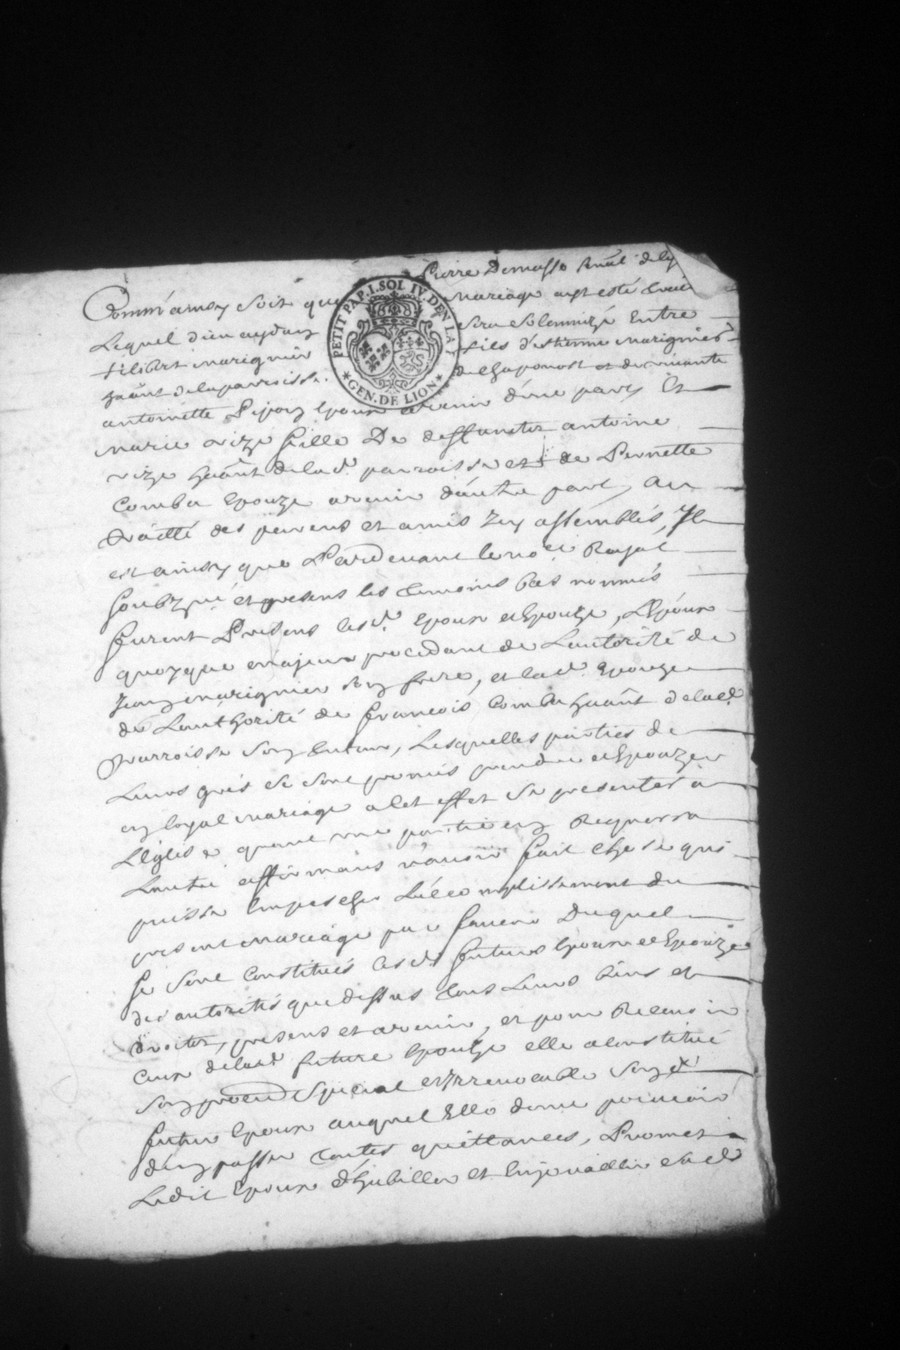 Pierre Demasso
Comm'ainsy soit que mariage ayt esté
PETIT PAP. I. SOL IV. DEN LA F
GEN. DE LION
Lequel dieu aydant sera solemnizé Entre
filibert marignier fils d'estienne marignier
haant de la parroisse de Chaponost et de vivante
antoinette epoux avenir d'une part, Et
marie vize fille De deffunct antoine
vize haant de lad. parroisse et de Pernette
Comba Epouze avenir d'autre part, au
traitté des parens et amis assemblés, Il
est ainsy que Pardevant le no.e Royal
soubz.né et presens les temoins bas nommés
furent Presens lesd. Epoux et Epouze, L'Epoux
quoyque majeur procedant de L'autorité de
Jean marignier son frere, et lad. Epouze
de L'authorité de francois Comba haant de lad.
Parroisse Lesquelles parties de
Leurs grés se sont promis prendre et Epouzer
en loyal mariage a cet effet se presenter a
L'Eglise quand une partie en Requerra
Lautre affirmans n'avoir fait chose qui
puisse Empescher L'accomplissement du
present mariage par faveur Duquel
se sont Constitués lesd. futurs Epoux et Epouze
des autorités que dessus tous Leurs biens et
droits, presens et avenir, et pour Recouvrir
ceux de lad. future Epouze elle a Constitué
son procur. special et Irrevocable son d.
futur Epoux auquel Elle donne pouvoir
d'en passer toutes quittances, Promet
Ledit Epoux d'habiller et Enjoailler